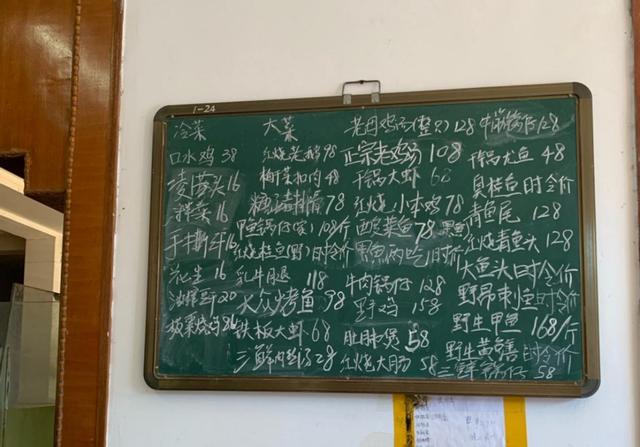 1-24
冷菜
口水鸡 38
16
拌菜 16
手撕牛 16
花生 16
20
板栗烧鸡 86
大菜
红烧 98
梅干菜扣肉 48
糖醋排骨 78
108/斤
红烧桂鱼(野)时令价
乳牛腿 118
大众烤鱼 98
铁板大虾 68
三鲜 28
老母鸡汤(整只) 128
正宗老鸡汤 108
干锅大虾 68
红烧小本鸡 78
酸菜鱼 78 黑鱼
黑鱼两吃 时价
牛肉锅仔 128
野鸡 158
肚肺煲 58
红烧大肠 58
锅仔 128
干锅尤鱼 48
臭桂鱼时令价
青鱼尾 128
红烧青鱼头 128
大鱼头时令价
野昂刺 时令价
野生甲鱼 168/斤
野生黄鳝 时令价
三鲜锅仔 58